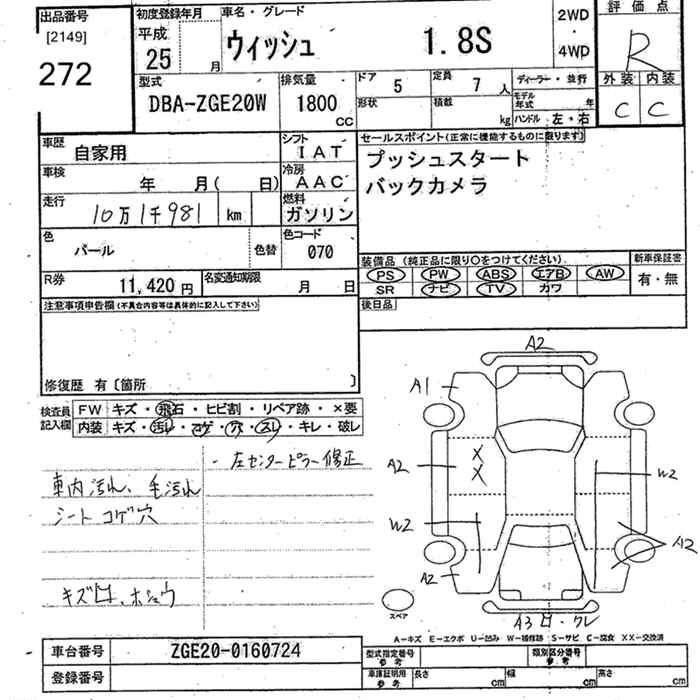 出品番号
[2149]
272
初度登録年月
平成
25 月
車名・グレード
ウィッシュ 1.8S
2WD
・
4WD
評価点
R
外装 内装
C C
型式
DBA-ZGE20W
排気量
1800
CC
ドア 5
形状
定員 7 人
積載 kg
ディーラー・並行
モデル年式 年
ハンドル 左・右
車歴 自家用
シフト
IAT
車検 年 月( 日)
冷房
AAC
走行 10万1千981 km
燃料
ガソリン
色 パール 色替
色コード
070
R券 11,420 円
名変通知期限 月 日
セールスポイント(正常に機能するものに限ります)
プッシュスタート
バックカメラ
装備品 (純正品に限り○をつけてください)
PS PW ABS エアB AW
SR ナビ TV カワ
新車保証書
有・無
後日品
注意事項申告欄(不具合内容等は具体的に記入して下さい)
修復歴 有〔箇所 〕
検査員
記入欄
FW キズ・飛石・ヒビ割・リペア跡・×要
内装 キズ・汚レ・コゲ・穴・スレ・キレ・破レ
・左センターピラー修正
車内汚れ、毛汚れ
シート コゲ穴
A2
A1
A2
X
X
W2
W2
W2
A2
A2
A3 クレ
スペア
A−キズ E−エクボ U−凹み W−補修跡 S−サビ C−腐食 XX−交換済
車台番号 ZGE20-0160724
登録番号
型式指定番号
参考
類別区分番号
参考
車庫証明用
参考
長さ cm
幅 cm
高さ cm